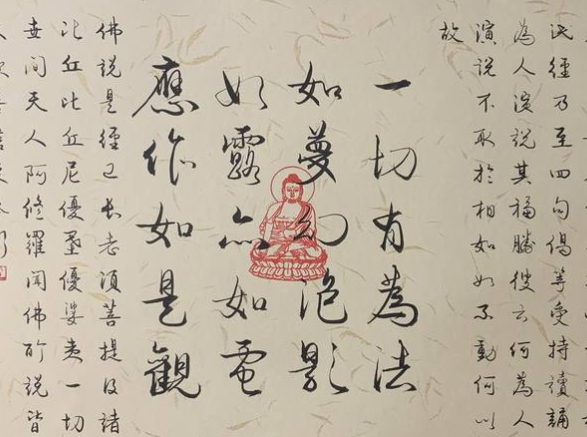 經乃至四句偈等受持讀誦
為人演說其福勝彼云何為人
演說不取於相如如不動何以
故
一切有為法
如夢幻泡影
如露亦如電
應作如是觀
佛說是經已長老須菩提及諸
比丘比丘尼優婆塞優婆夷一切
世間天人阿修羅聞佛所說皆